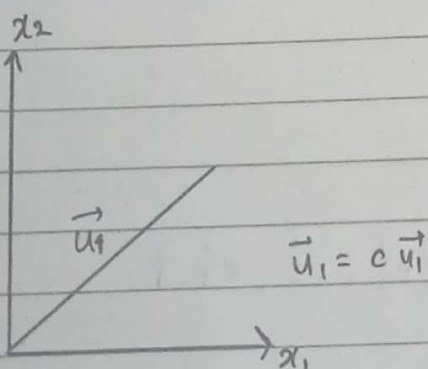 x2
u⃗1
u⃗1 = c u⃗1
x1